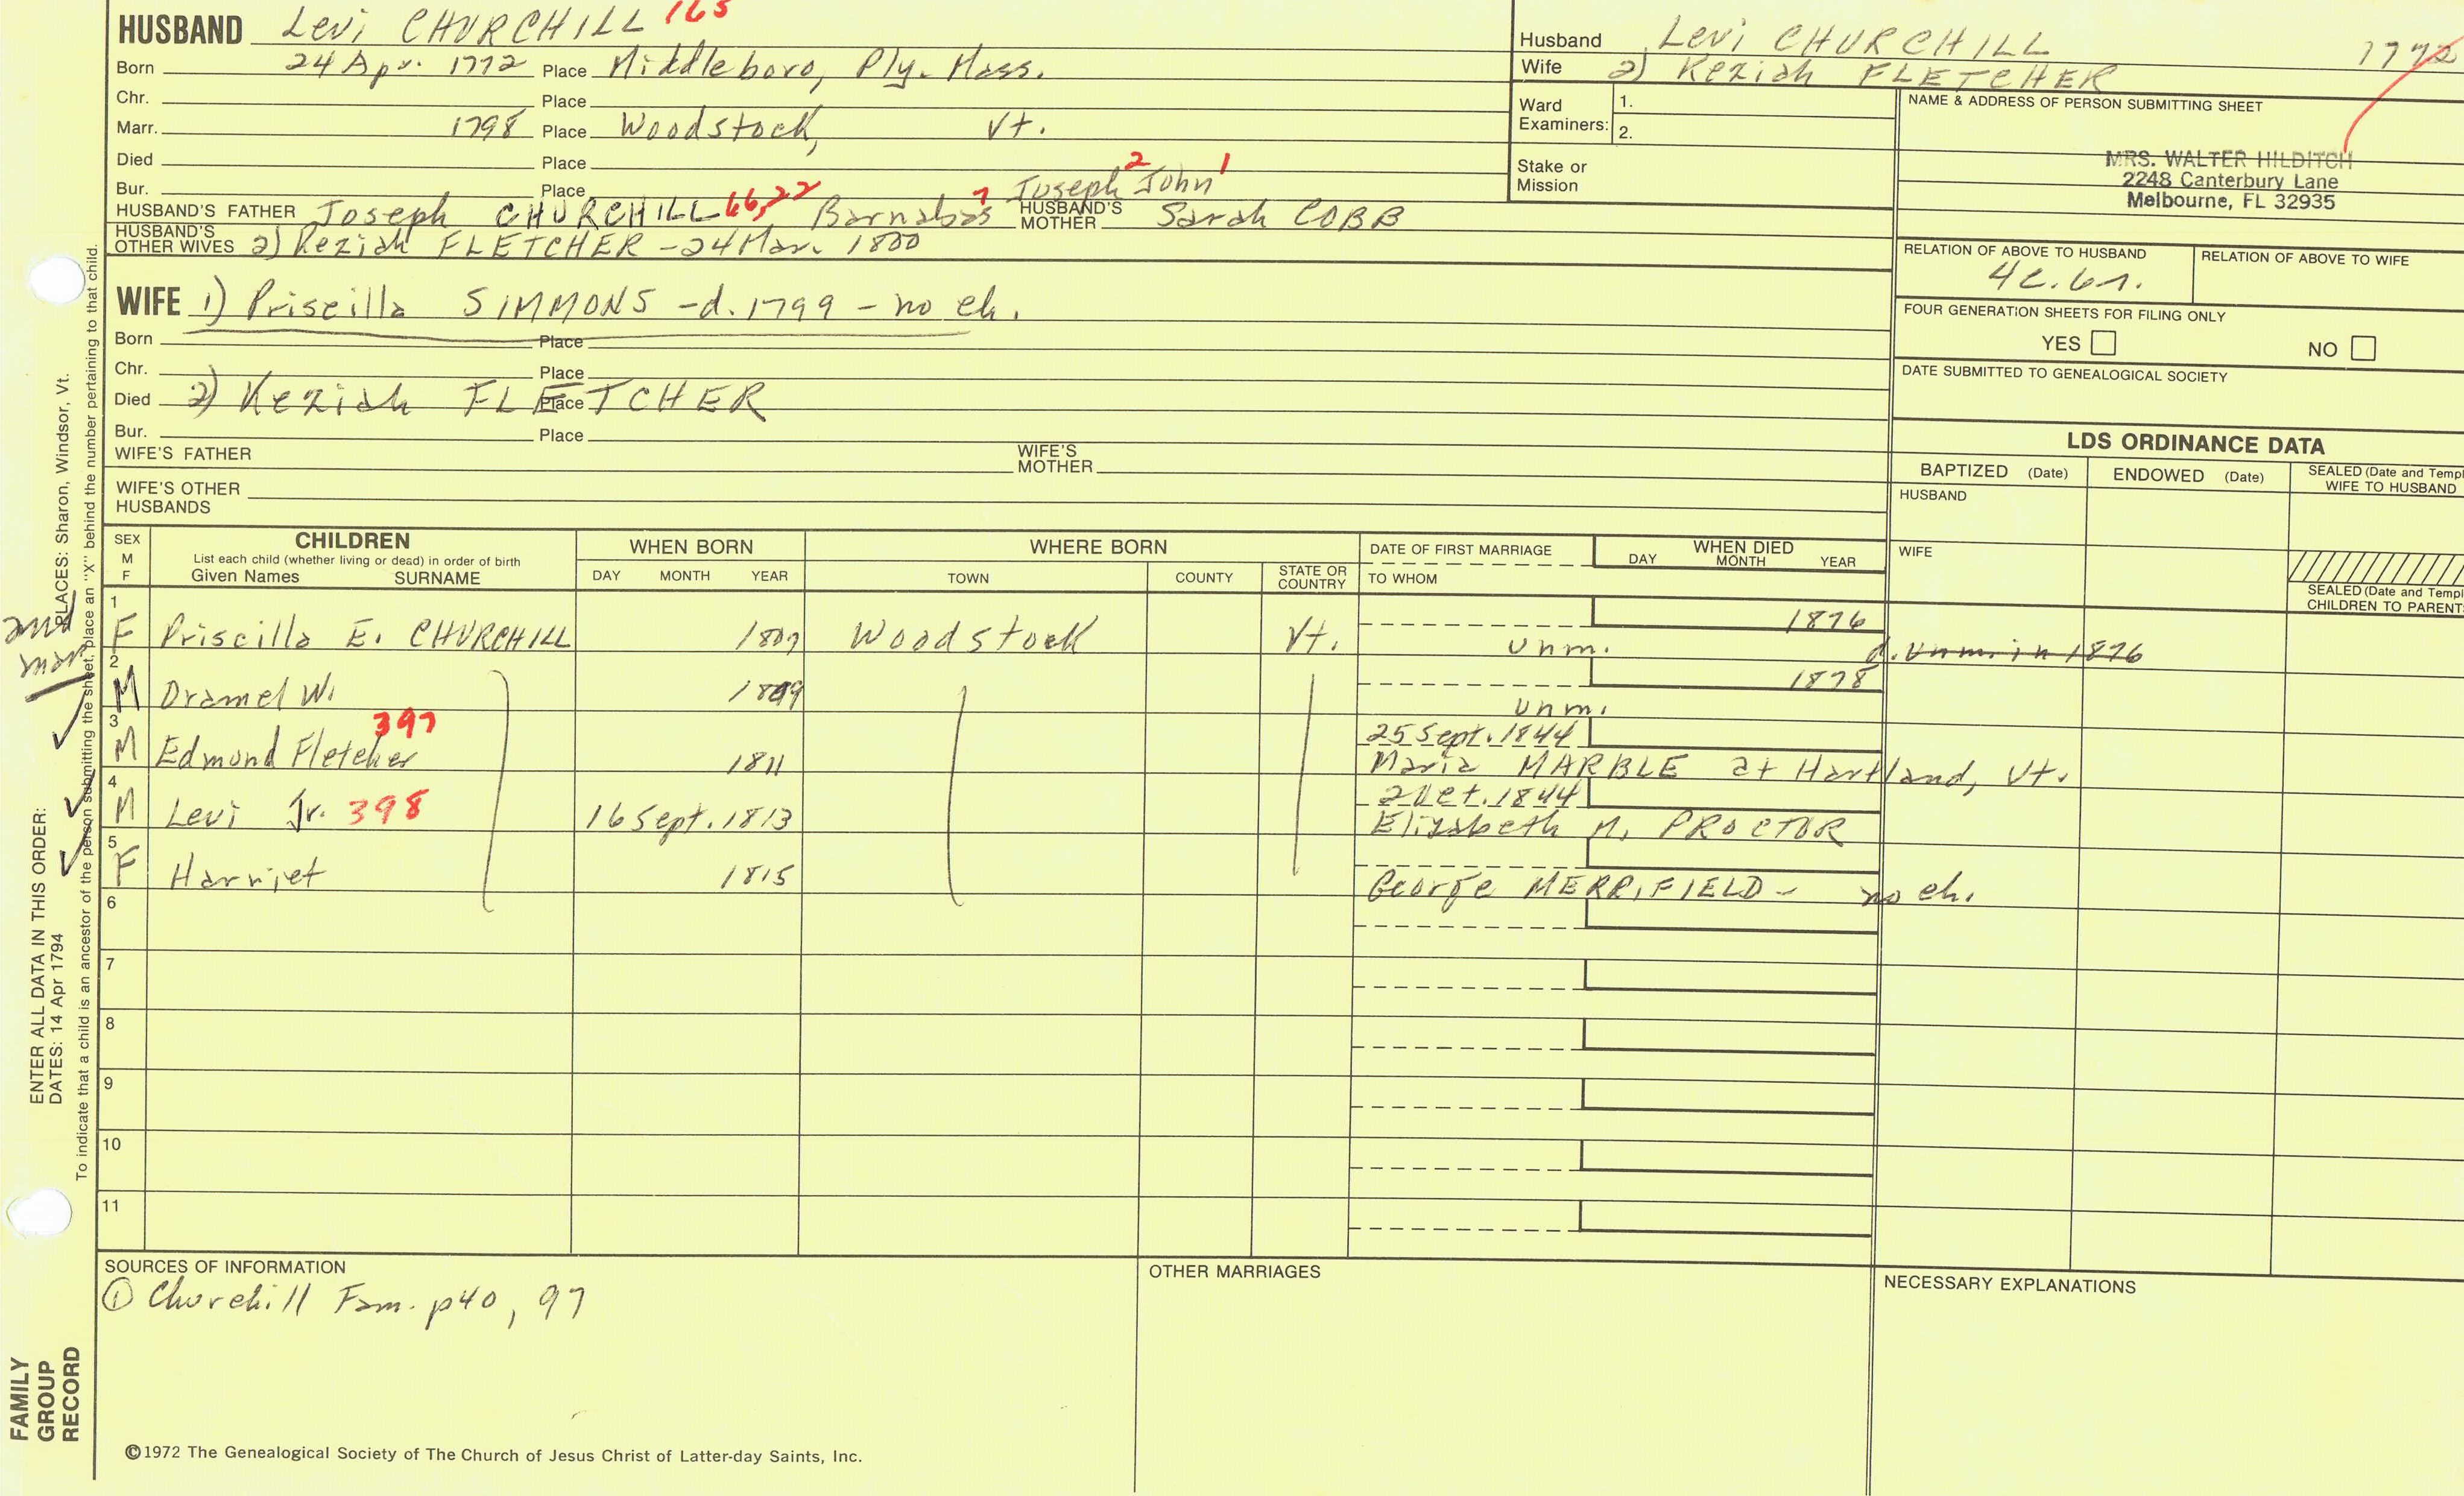 HUSBAND Levi CHURCHILL 165
Born 24 Apr. 1772 Place Middleboro, Ply. Mass.
Chr. Place
Marr. 1798 Place Woodstock, Vt.
Died Place
Bur. Place
Joseph 2 John 1
HUSBAND'S FATHER Joseph CHURCHILL 66, 22 Barnabas 7 HUSBAND'S MOTHER Sarah COBB
HUSBAND'S OTHER WIVES 2) Keziah FLETCHER - 24 Mar. 1800
WIFE 1) Priscilla SIMMONS - d. 1799 - no ch.
Born Place
Chr. Place
Died 2) Keziah FLETCHER Place
Bur. Place
WIFE'S FATHER WIFE'S MOTHER
WIFE'S OTHER HUSBANDS
Husband Levi CHURCHILL 1772
Wife 2) Keziah FLETCHER
Ward Examiners: 1.
2.
Stake or Mission
NAME & ADDRESS OF PERSON SUBMITTING SHEET
MRS. WALTER HILDITCH
2248 Canterbury Lane
Melbourne, FL 32935
RELATION OF ABOVE TO HUSBAND RELATION OF ABOVE TO WIFE
4c. 6r.
FOUR GENERATION SHEETS FOR FILING ONLY
YES NO
DATE SUBMITTED TO GENEALOGICAL SOCIETY
LDS ORDINANCE DATA
BAPTIZED (Date) ENDOWED (Date) SEALED (Date and Templ
WIFE TO HUSBAND
HUSBAND
WIFE
SEALED (Date and Templ
CHILDREN TO PARENT
SEX M F CHILDREN WHEN BORN WHERE BORN DATE OF FIRST MARRIAGE WHEN DIED
List each child (whether living or dead) in order of birth
Given Names SURNAME DAY MONTH YEAR TOWN COUNTY STATE OR COUNTRY TO WHOM DAY MONTH YEAR
1 F Priscilla E. CHURCHILL 1807 Woodstock Vt. 1876
unm. d. unm. in 1876
2 M Dramel W. 1809 1878
unm.
3 M Edmund Fletcher 397 1811 25 Sept. 1844
Maria MARBLE at Hartland, Vt.
4 M Levi Jr. 398 16 Sept. 1813 2 Oct. 1844
Elizabeth M. PROCTOR
5 F Harriet 1815
George MERRIFIELD - no ch.
6
7
8
9
10
11
SOURCES OF INFORMATION OTHER MARRIAGES NECESSARY EXPLANATIONS
① Churchill Fam. p40, 97
©1972 The Genealogical Society of The Church of Jesus Christ of Latter-day Saints, Inc.
FAMILY GROUP RECORD
ENTER ALL DATA IN THIS ORDER:
DATES: 14 Apr 1794 PLACES: Sharon, Windsor, Vt.
To indicate that a child is an ancestor of the person submitting the sheet, place an "X" behind the number pertaining to that child.